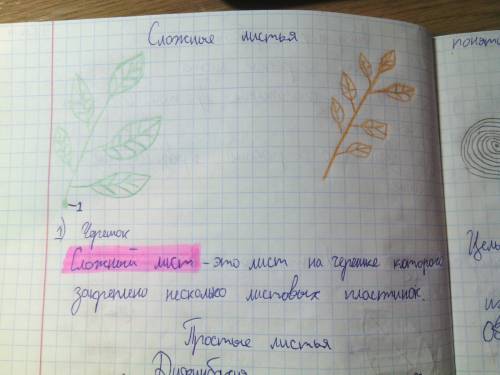 Сложные листья
1
1) Черешок
Сложный лист - это лист на черешке которого
закреплено несколько листовых пластинок.
Простые листья